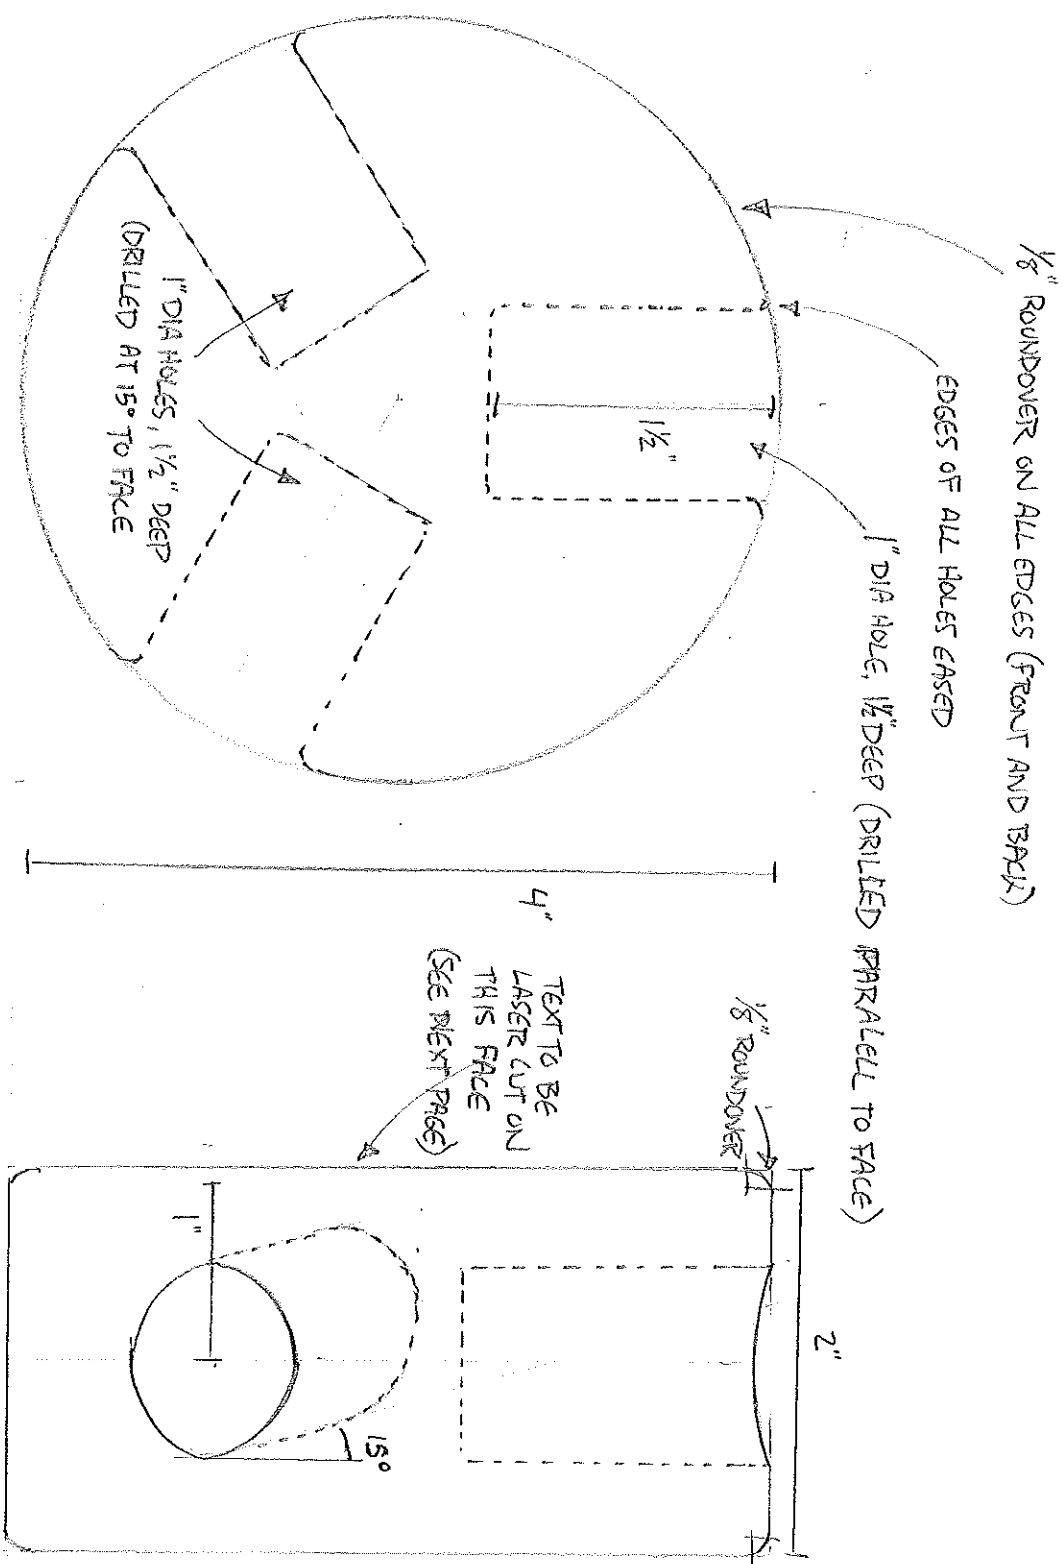 ⅛" ROUNDOVER ON ALL EDGES (FRONT AND BACK)
EDGES OF ALL HOLES EASED
1" DIA HOLE, 1½" DEEP (DRILLED PARALELL TO FACE)
1½"
1" DIA HOLES, 1½" DEEP
(DRILLED AT 15° TO FACE
4"
TEXT TO BE
LASER CUT ON
THIS FACE
(SEE NEXT PAGE)
⅛" ROUNDOVER
2"
1"
15°